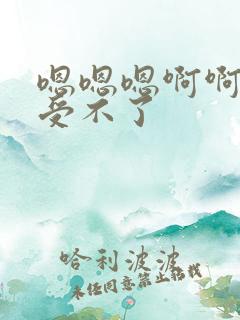 嗯嗯嗯啊啊
受不了
哈利波波
未经同意禁止转载